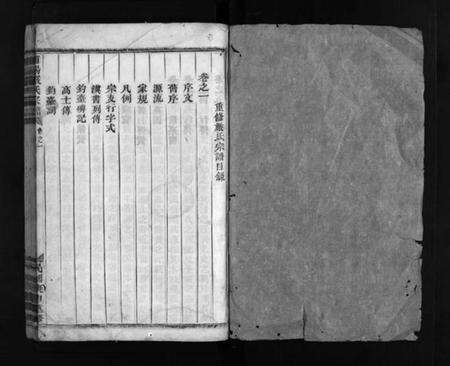 重修嚴氏宗譜目錄
卷之一
序文
舊序
源流
家規
凡例
宗支行字式
漢書列傳
釣臺碑記
高士傳
釣臺詞